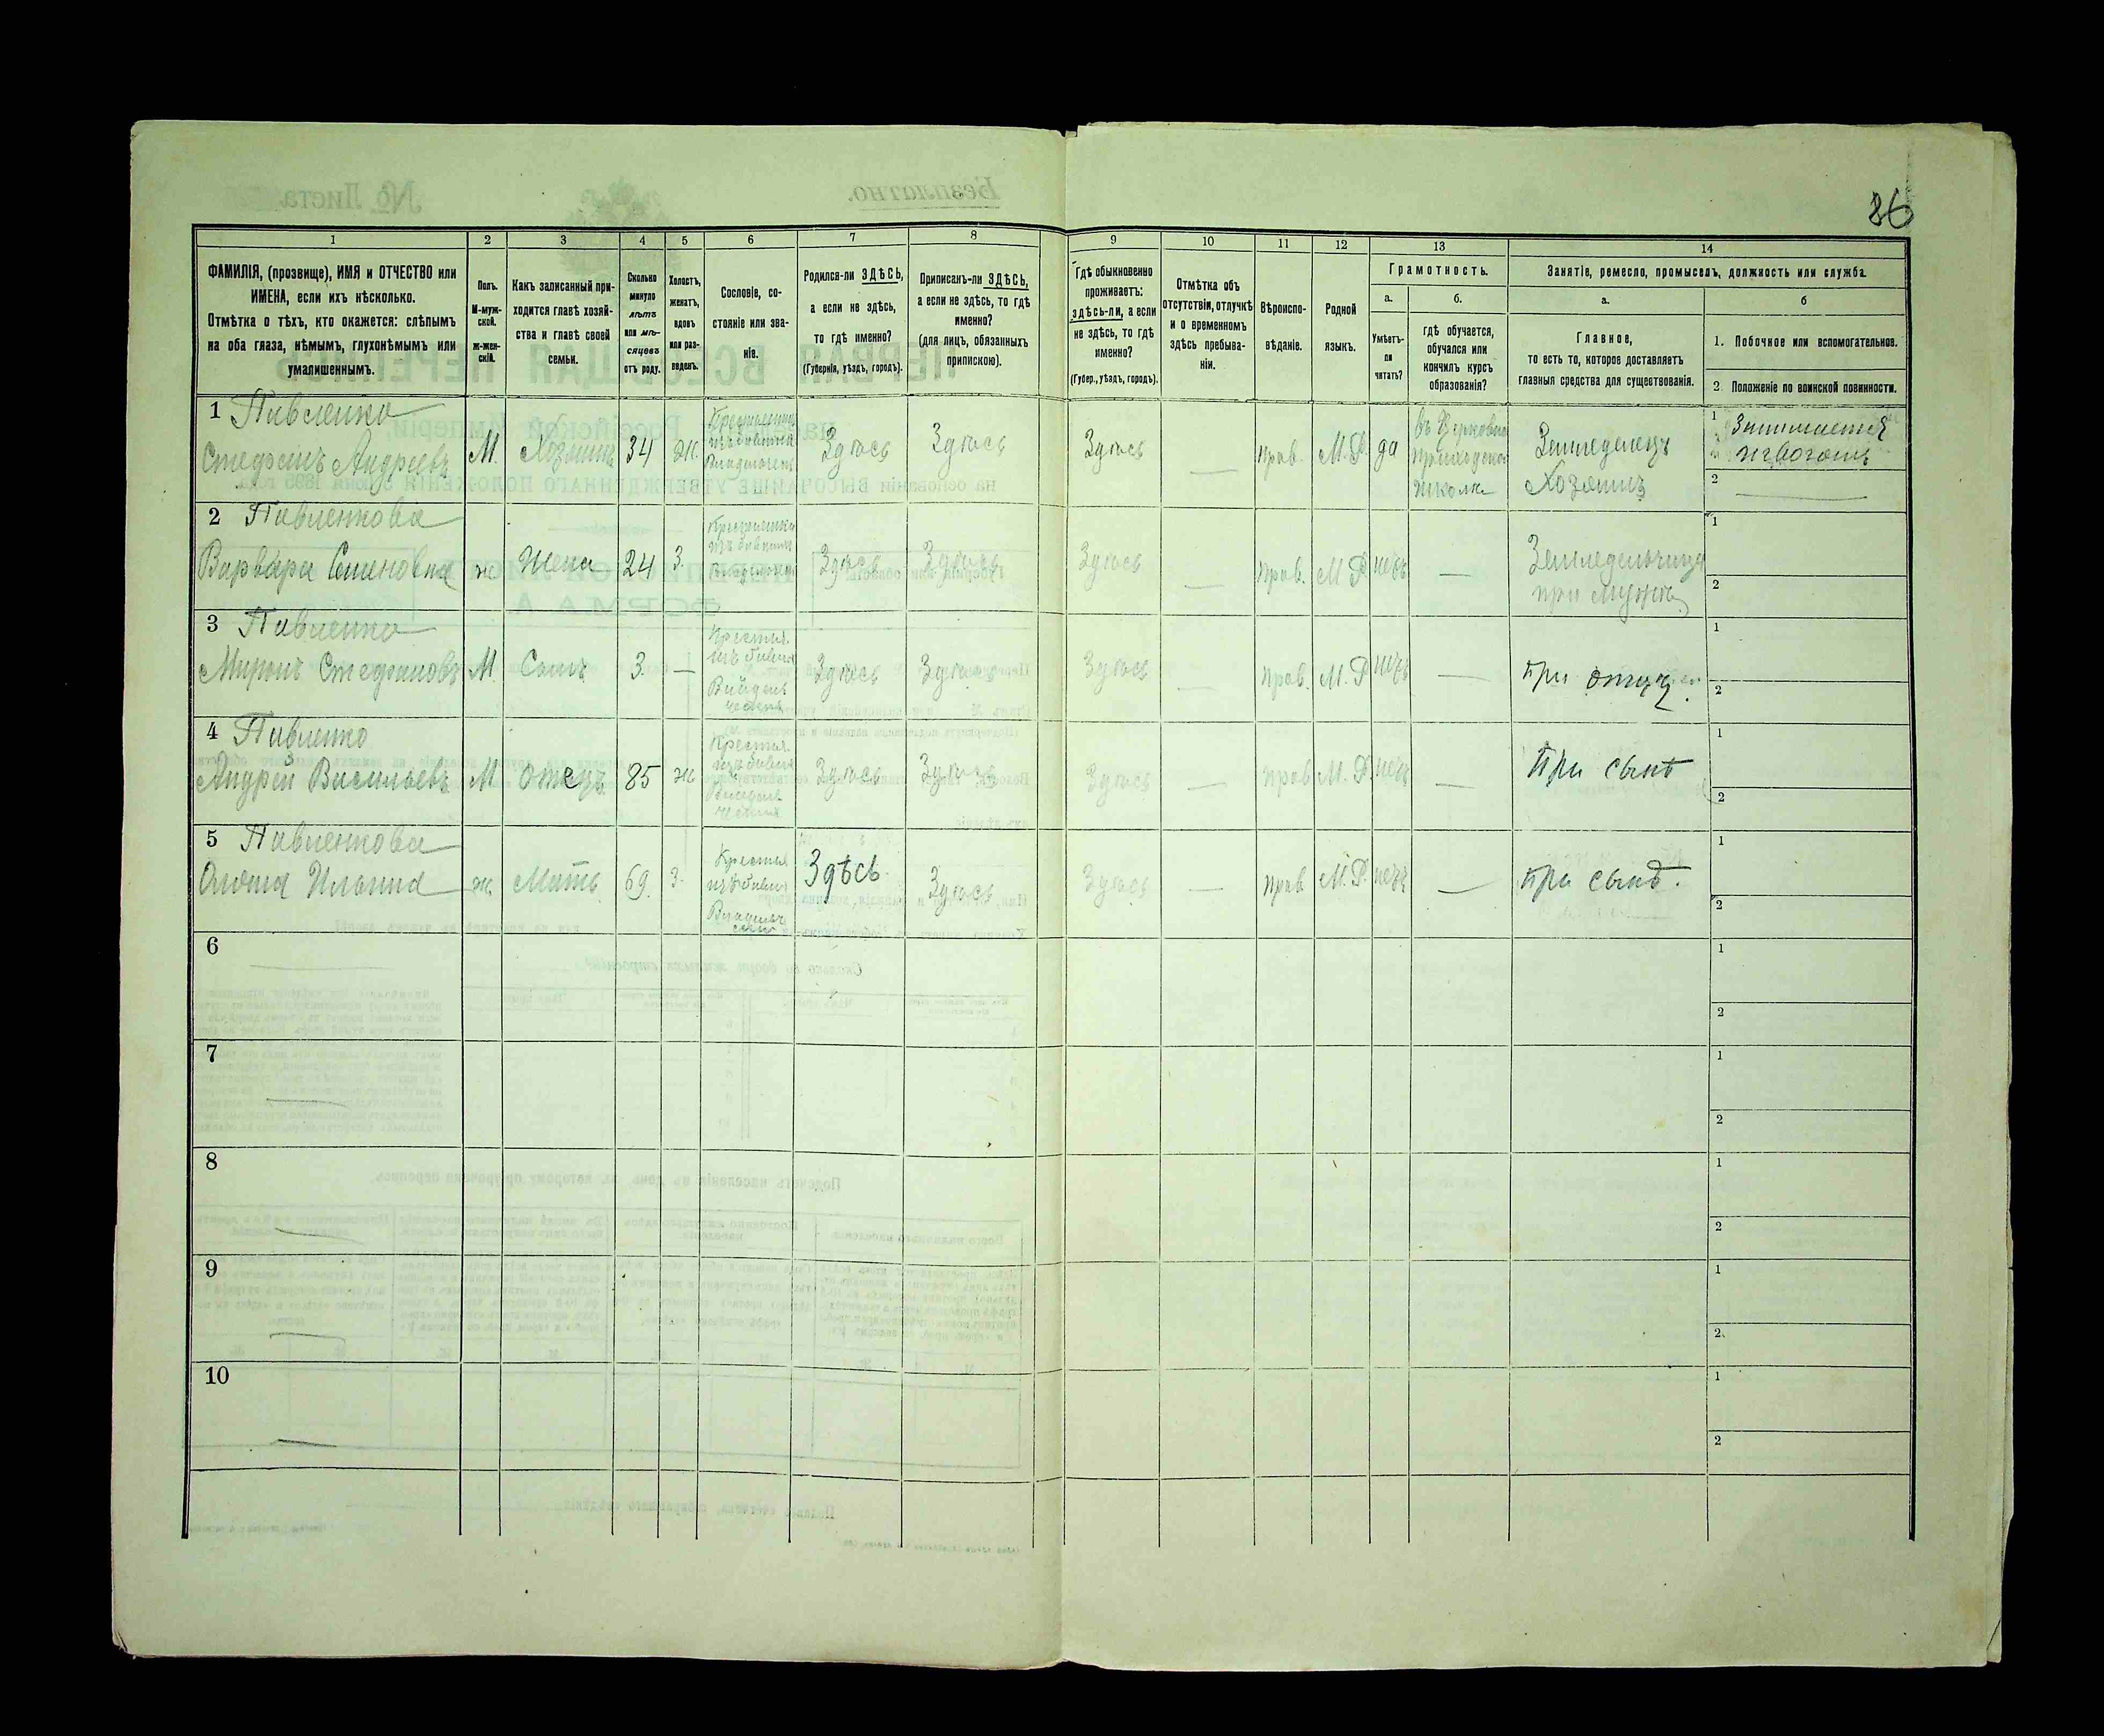 86
1
2
3
4
5
6
7
8
9
10
11
12
13
14
ФАМИЛІЯ, (прозвище), ИМЯ и ОТЧЕСТВО или
ИМЕНА, если ихъ нѣсколько.
Отмѣтка о тѣхъ, кто окажется: слѣпымъ
на оба глаза, нѣмымъ, глухонѣмымъ или
умалишеннымъ.
Полъ.
М-муж-
ской.
ж-жен-
скій.
Какъ записанный при-
ходится главѣ хозяй-
ства и главѣ своей
семьи.
Сколько
минуло
лѣтъ
или мѣ-
сяцевъ
отъ роду.
Холостъ,
женатъ,
вдовъ
или раз-
веденъ.
Сословіе, со-
стояніе или зва-
ніе.
Родился-ли ЗДѢСЬ,
а если не здѣсь,
то гдѣ именно?
(Губернія, уѣздъ, городъ).
Приписанъ-ли ЗДѢСЬ,
а если не здѣсь, то гдѣ
именно?
(для лицъ, обязанныхъ
припискою).
Гдѣ обыкновенно
проживаетъ:
здѣсь-ли, а если
не здѣсь, то гдѣ
именно?
(Губер., уѣздъ, городъ).
Отмѣтка объ
отсутствіи, отлучкѣ
и о временномъ
здѣсь пребыва-
ніи.
Вѣроиспо-
вѣданіе.
Родной
языкъ.
Грамотность.
а.
б.
Умѣетъ-
ли
читать?
гдѣ обучается,
обучался или
кончилъ курсъ
образованія?
Занятіе, ремесло, промыселъ, должность или служба.
а.
б
Главное,
то есть то, которое доставляетъ
главныя средства для существованія.
1. Побочное или вспомогательное.
2. Положеніе по воинской повинности.
1 Павленко
Стефанъ Андреевъ
М.
Хозяинъ
34
ж.
Здѣсь
Здѣсь
Здѣсь
—
прав.
М. Р.
да
въ Церковно
приходской
школѣ
Земледелецъ
Хозяинъ
1 Занимается
2 —
2 Павленкова
Варвара
ж
Жена
24
З.
Здѣсь
Здѣсь
Здѣсь
—
прав.
М Р
нѣтъ
—
Земледельчица
при мужѣ
1
2
3 Павленко
Миронъ Стефановъ
М
Сынъ
3.
—
Крестья.
Здѣсь
Здѣсь
Здѣсь
—
прав.
М. Р
нѣтъ
—
при отцѣ.
1
2
4 Павленко
Андрей Васильевъ
М
отецъ
85
ж
Крестья.
Здѣсь
Здѣсь
Здѣсь
—
прав
М. Р.
нѣтъ
—
при сынѣ
1
2
5 Павленкова
Ильина
ж.
Мать
69.
З.
Крестья
Здѣсь.
Здѣсь
Здѣсь
—
прав
М. Р.
нѣтъ
—
при сынѣ.
1
2
6
1
2
7
1
2
8
1
2
9
1
2.
10
1
2